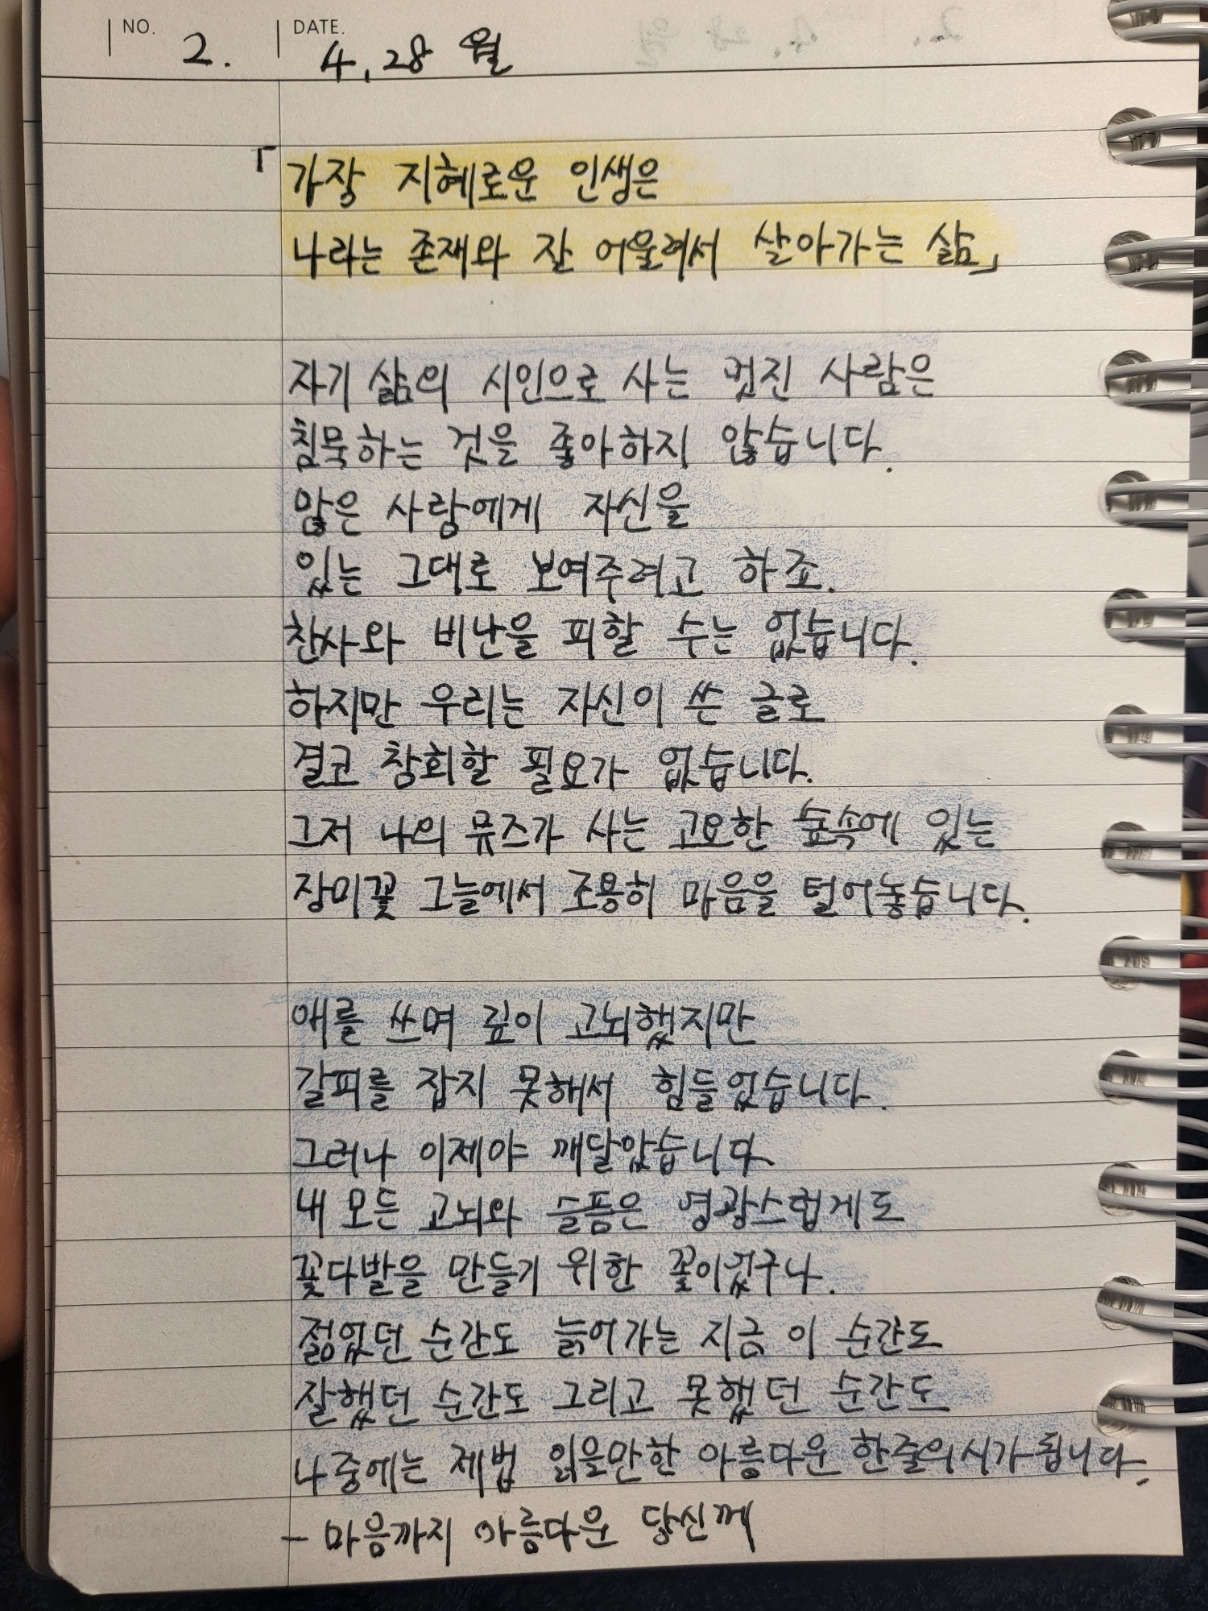 NO. 2. DATE. 4, 28 월
「가장 지혜로운 인생은
나라는 존재와 잘 어울려서 살아가는 삶」
자기 삶의 시인으로 사는 멋진 사람은
침묵하는 것을 좋아하지 않습니다.
많은 사람에게 자신을
있는 그대로 보여주려고 하죠.
찬사와 비난을 피할 수는 없습니다.
하지만 우리는 자신이 쓴 글로
결코 참회할 필요가 없습니다.
그저 나의 뮤즈가 사는 고요한 숲속에 있는
장미꽃 그늘에서 조용히 마음을 털어놓습니다.
애를 쓰며 깊이 고뇌했지만
갈피를 잡지 못해서 힘들었습니다.
그러나 이제야 깨달았습니다.
내 모든 고뇌와 슬픔은 영광스럽게도
꽃다발을 만들기 위한 꽃이었구나.
젊었던 순간도 늙어가는 지금 이 순간도
잘했던 순간도 그리고 못했던 순간도
나중에는 제법 읽을만한 아름다운 한줄의 시가 됩니다.
- 마음까지 아름다운 당신께